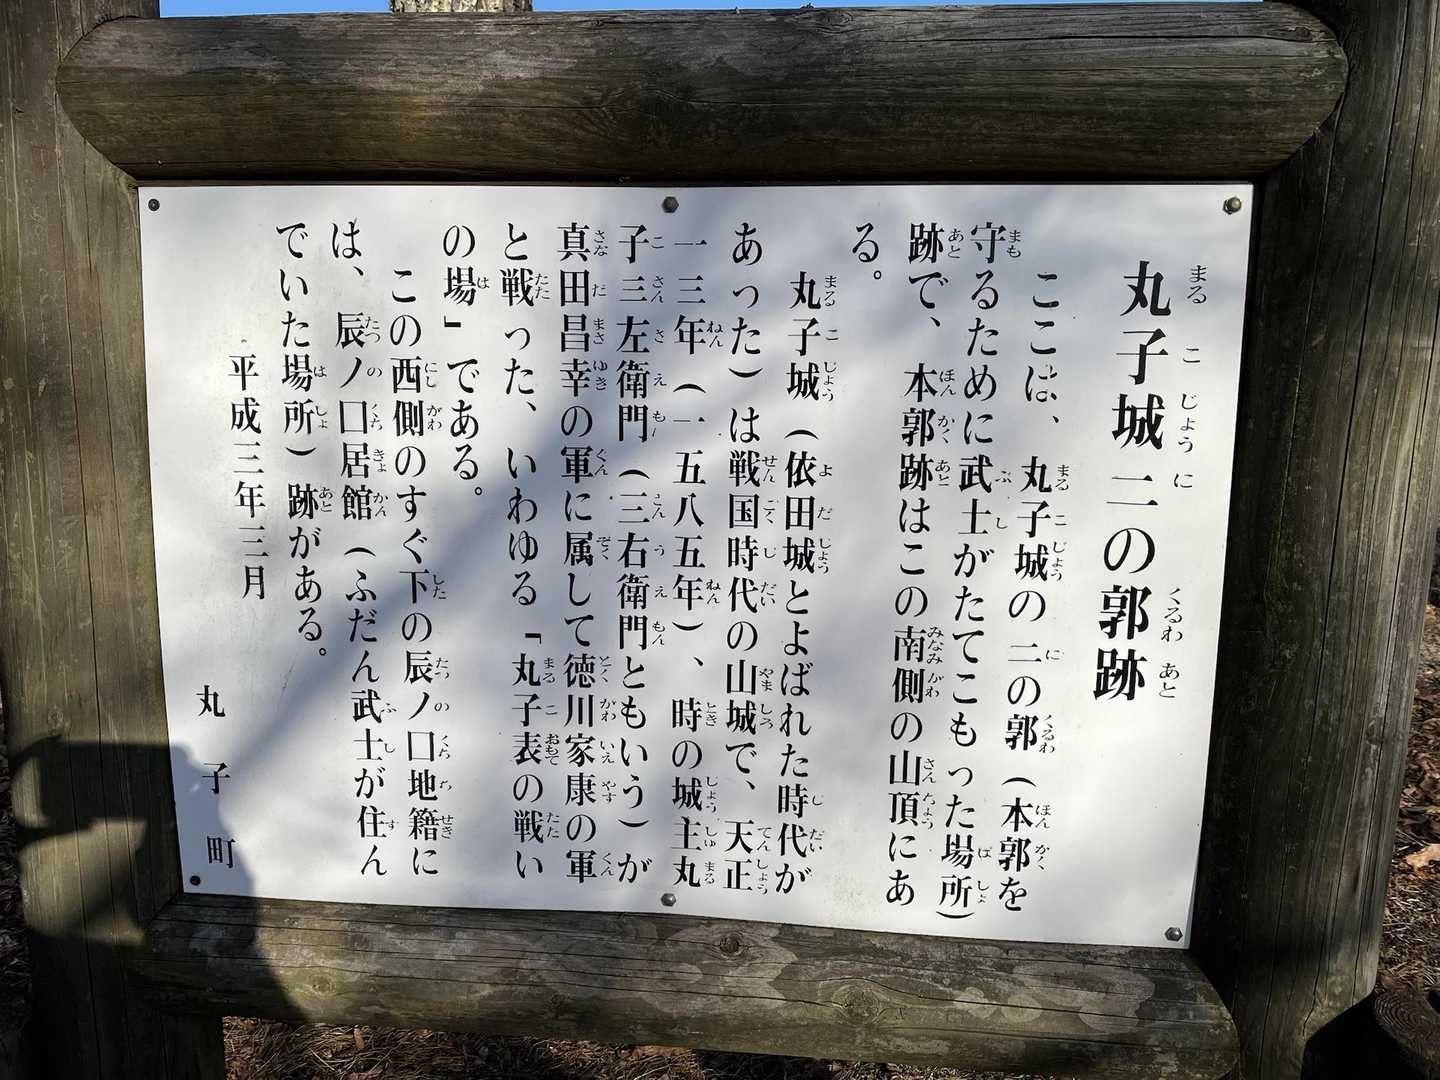 丸子城二の郭跡
ここは、丸子城の二の郭（本郭を
守るために武士がたてこもった場所）
跡で、本郭跡はこの南側の山頂にあ
る。
丸子城（依田城とよばれた時代が
あった）は戦国時代の山城で、天正
一三年（一五八五年）、時の城主丸
子三左衛門（三右衛門ともいう）が
真田昌幸の軍に属して徳川家康の軍
と戦った、いわゆる「丸子表の戦い
の場」である。
この西側のすぐ下の辰ノ口地籍に
は、辰ノ口居館（ふだん武士が住ん
でいた場所）跡がある。
平成三年三月
丸子町